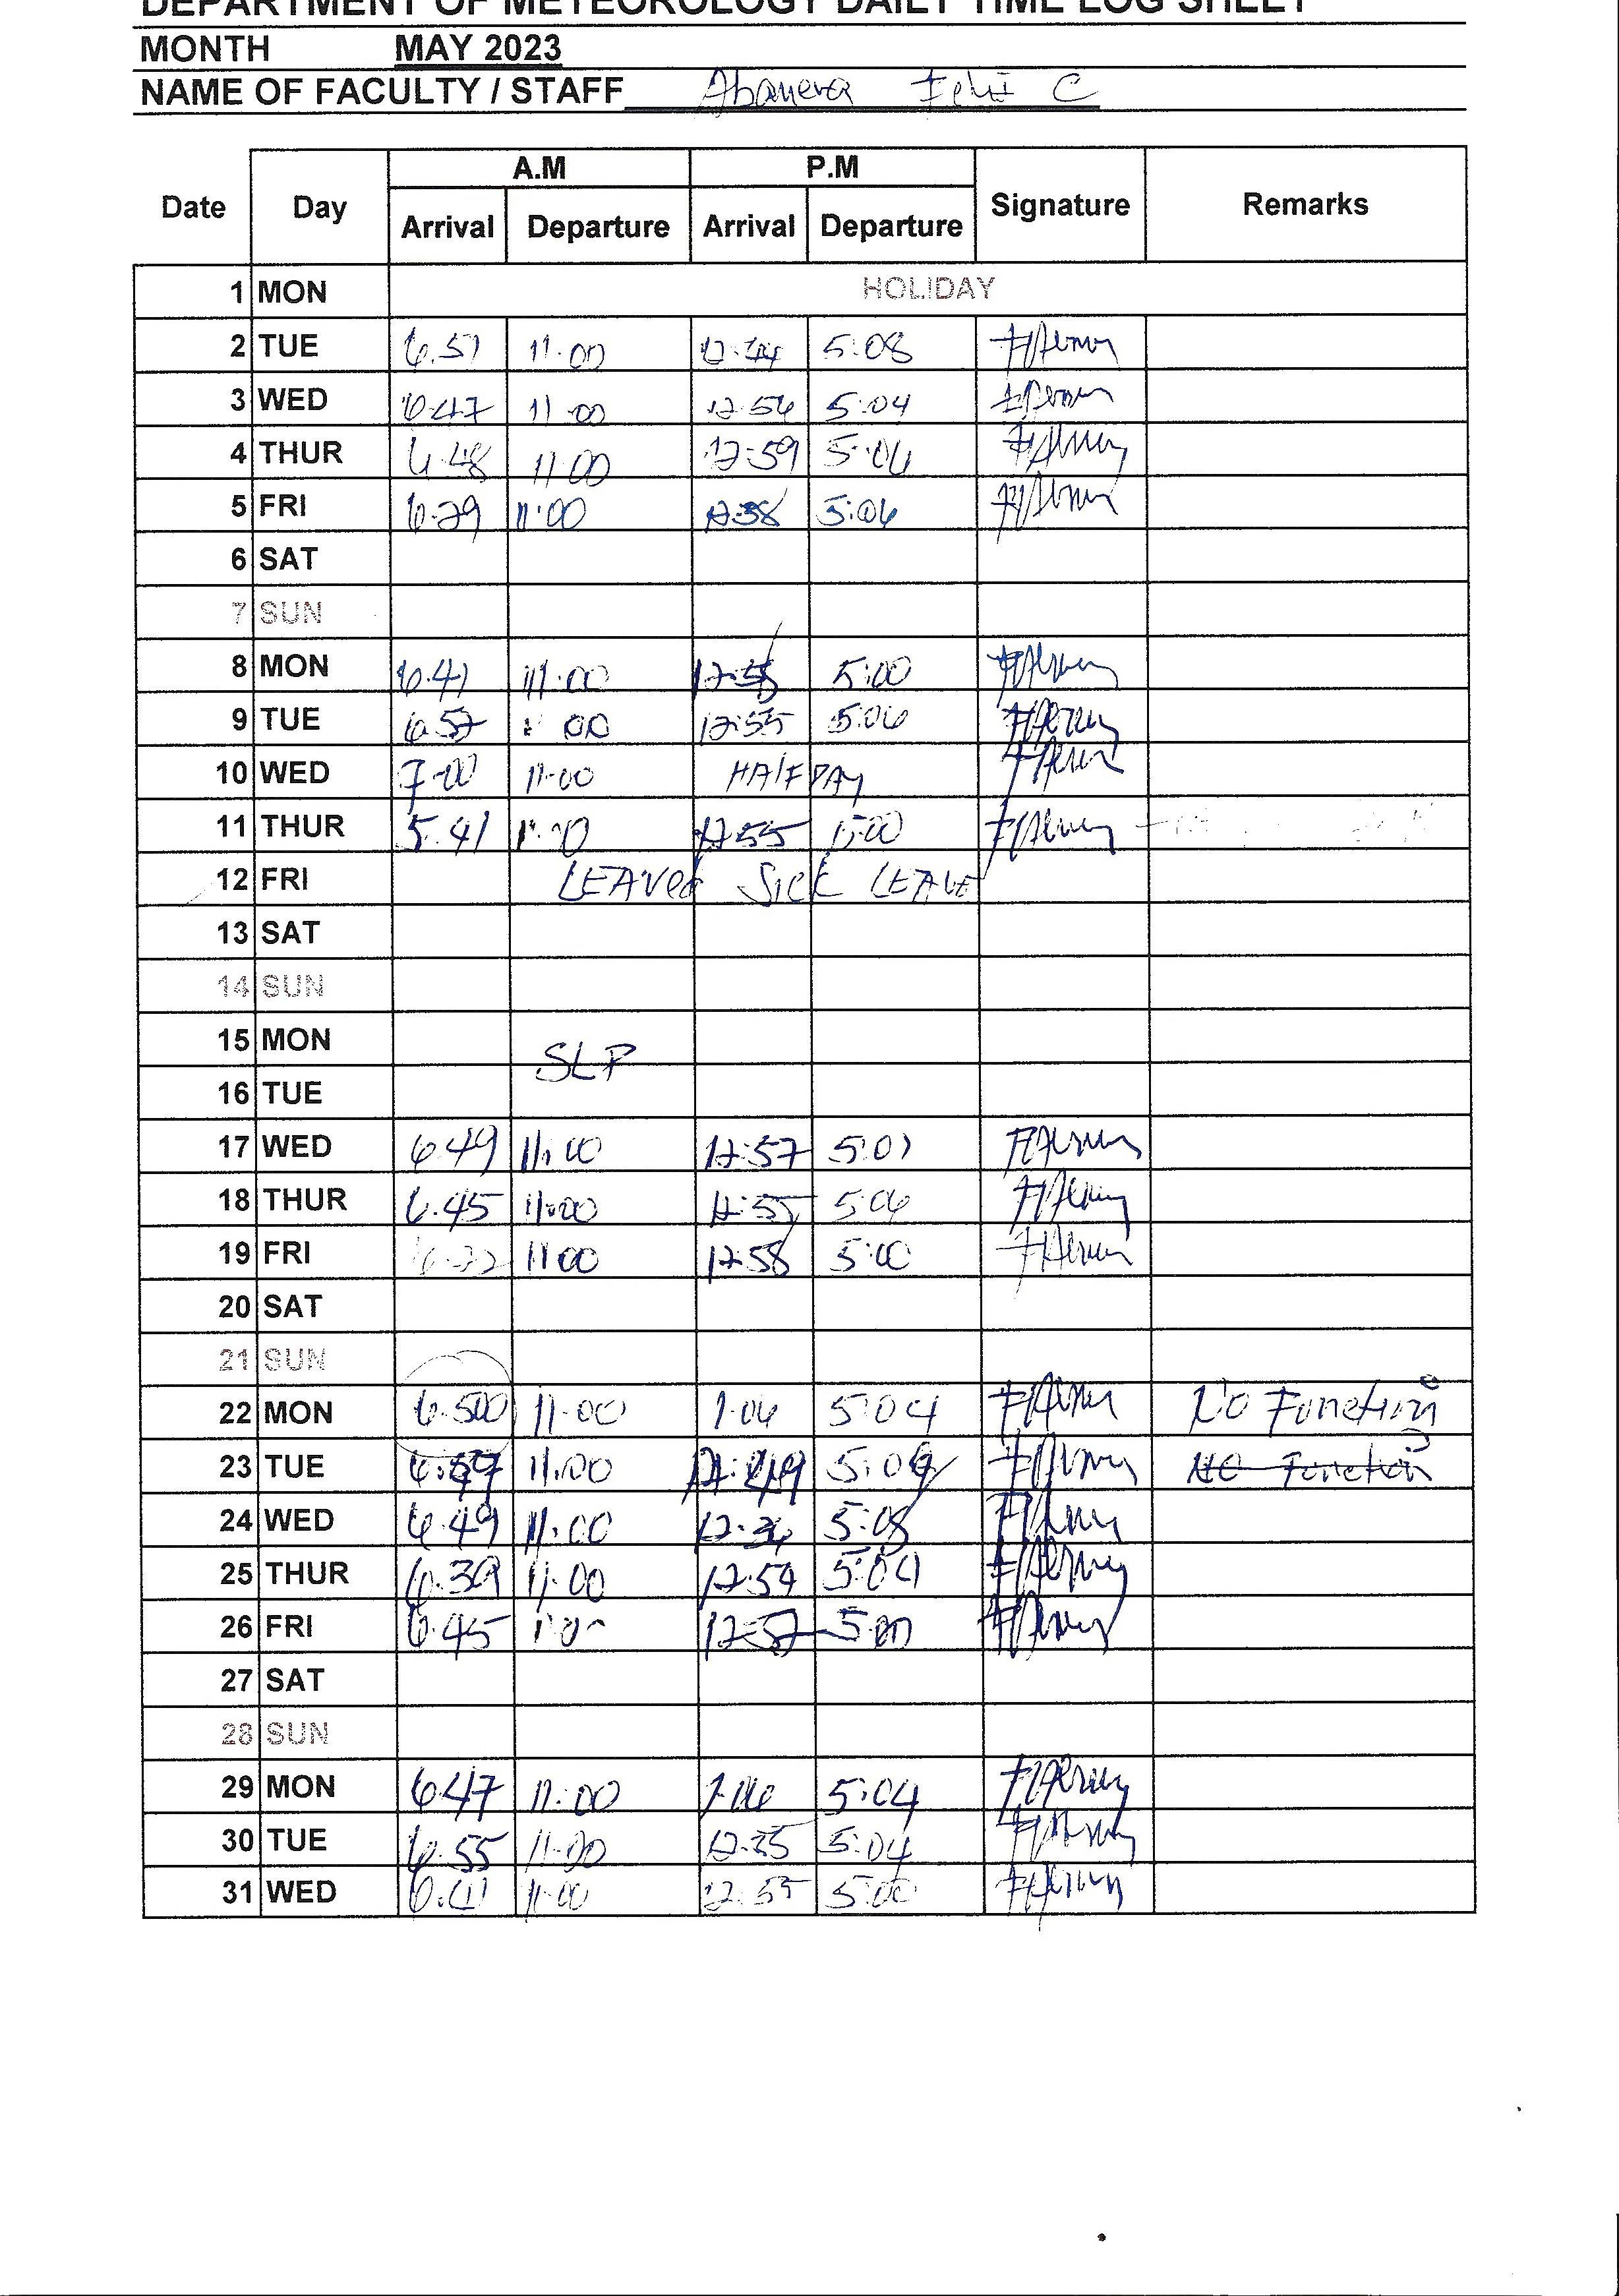 DEPARTMENT OF METEOROLOGY DAILY TIME LOG SHEET
MONTH MAY 2023
NAME OF FACULTY / STAFF C
A.M P.M
Date Day Signature Remarks
Arrival Departure Arrival Departure
1 MON HOLIDAY
2 TUE 6.57 11:00 12:44 5:08
3 WED 6:47 11:00 12:56 5:04
4 THUR 6.48 11:00 12:59 5:06
5 FRI 6:29 11:00 12:38 5:06
6 SAT
7 SUN
8 MON 6.41 11:00 5:00
9 TUE 6.57 12:55 5:06
10 WED 7-00 11-00 HALF DAY
11 THUR 5.41 12:55
12 FRI SICK LEAVE
13 SAT
14 SUN
15 MON
SLP
16 TUE
17 WED 6.49 11:00 12:57 5:01
18 THUR 6.45 11:00 12:55 5:06
19 FRI 11:00 12:58 5:00
20 SAT
21 SUN
22 MON 11-00 1-06 5:04 No Function
23 TUE 11:00 No Function
24 WED 6.49 11:00 5:08
25 THUR 6.39 11:00 12:54 5:04
26 FRI 6.45 12:57
27 SAT
28 SUN
29 MON 6.47 11:00 1-06 5:04
30 TUE 6.55 11:00 12:35 5:04
31 WED 11:00 12:55 5:00